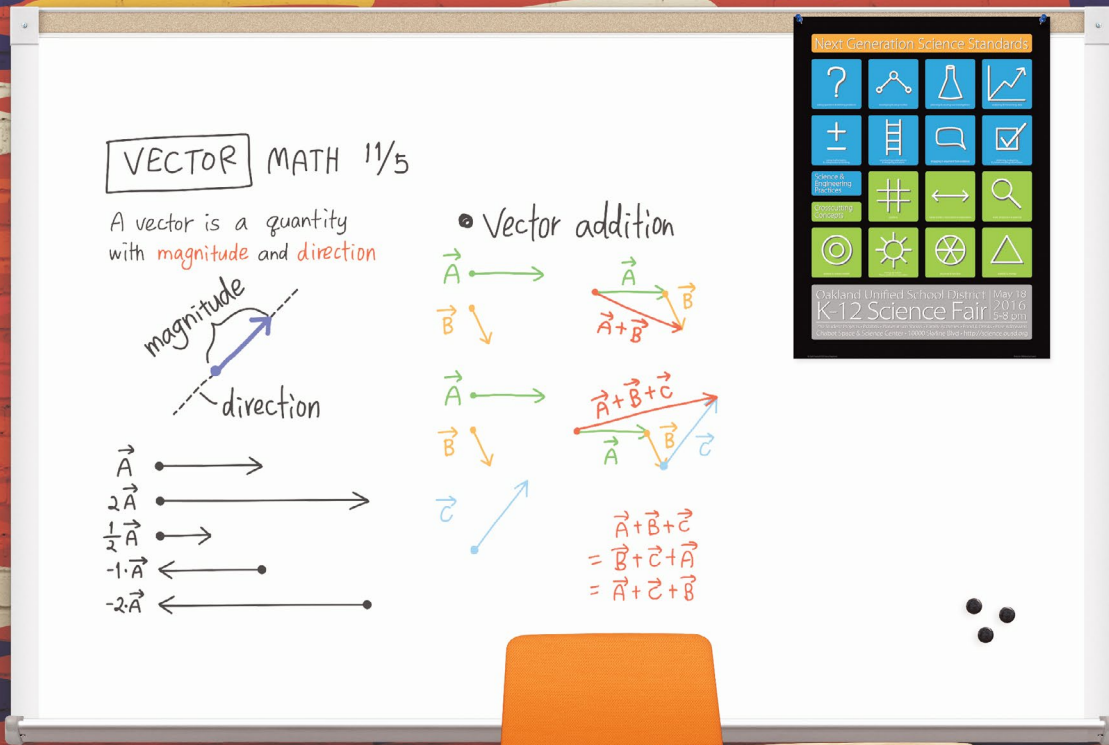 VECTOR MATH 11/5
A vector is a quantity
with magnitude and direction
magnitude
direction
A
2A
1/2 A
-1·A
-2·A
• Vector addition
A
B
A
B
A+B
A
B
C
A+B+C
A
B
C
A+B+C
= B+C+A
= A+C+B
Next Generation Science Standards
?
+
−
Science &
Engineering
Practices
Crosscutting
Concepts
Oakland Unified School District
K-12 Science Fair
May 18
2016
5-8 pm